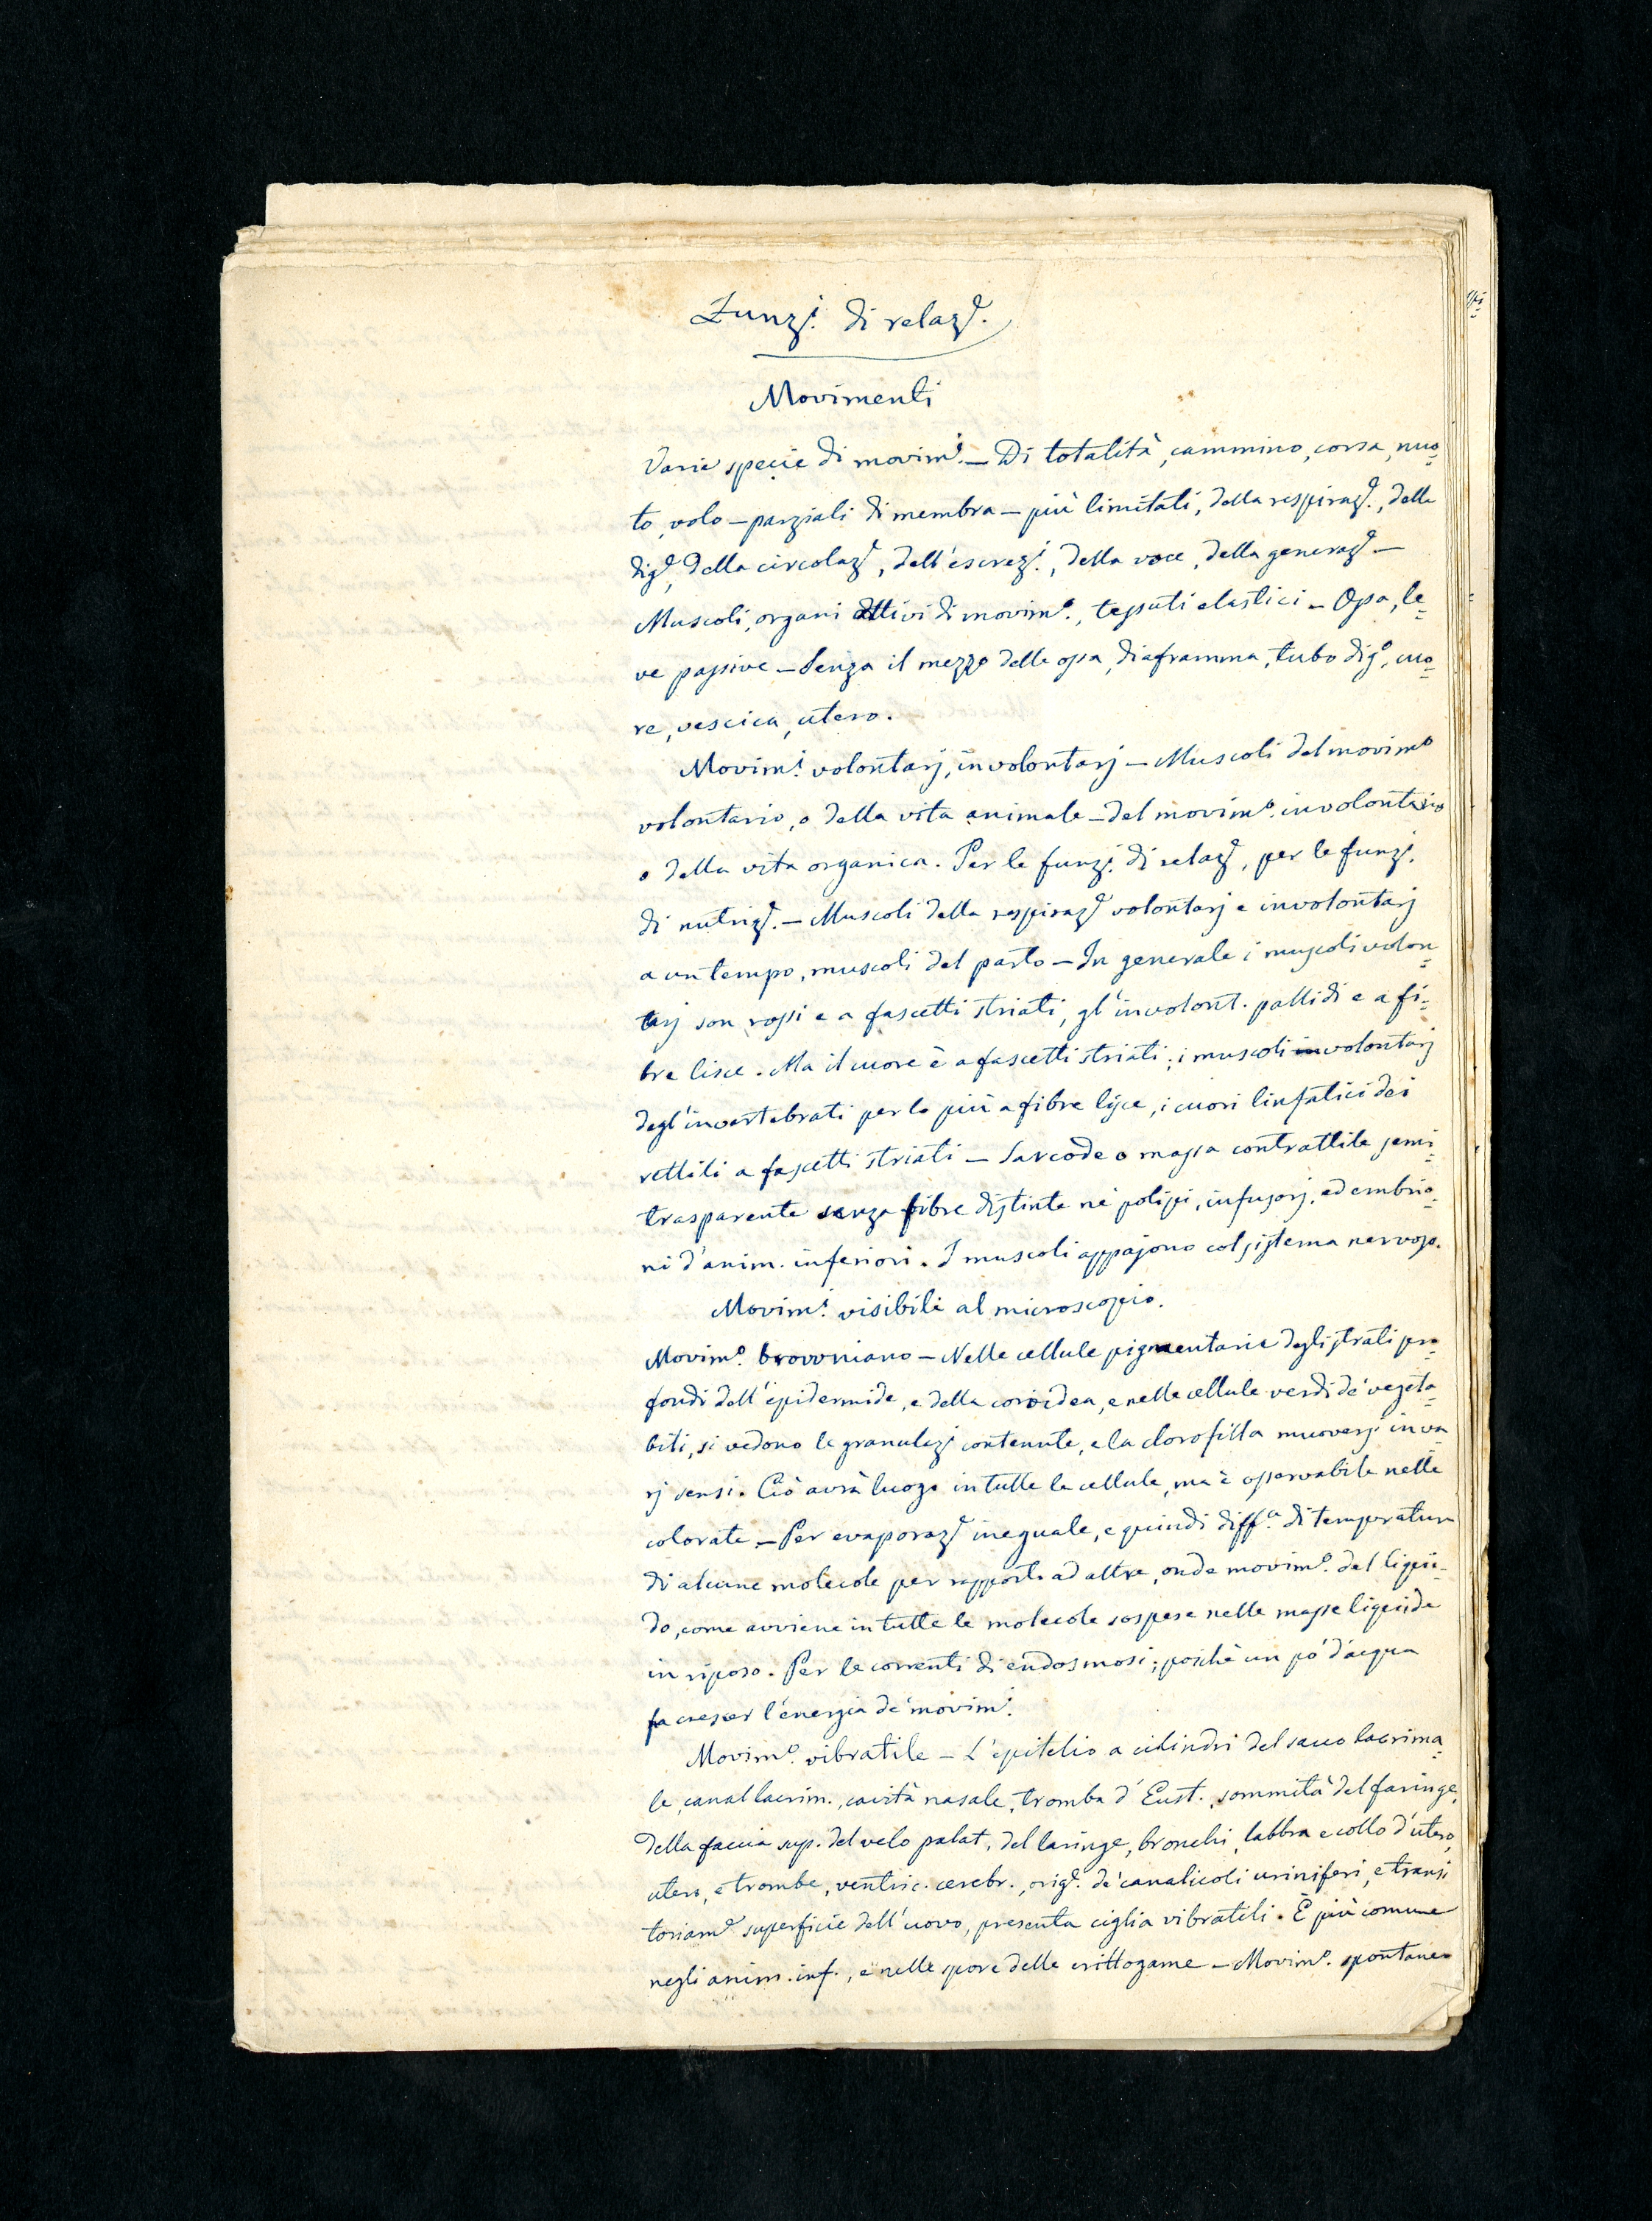 Funz.i di relaz.e
Movimenti
Varie specie di movim.i — Di totalità, cammino, corsa, nuo=
to, volo — parziali di membra — più limitati, della respiraz.e, della
dig.e, della circolaz.e, dell'escrez.i, della voce, della generaz.e —
Muscoli, organi attivi di movim.o, tessuti elastici — Ossa, le=
ve passive — Senza il mezzo delle ossa, diaframma, tubo dig.o, cuo=
re, vescica, utero.
Movim.i volontarj, involontarj — Muscoli del movim.o
volontario, o della vita animale — del movim.o involontario
o della vita organica. Per le funz.i di relaz.e, per le funz.i
di nutriz.e. — Muscoli della respiraz.e volontarj e involontarj
a un tempo, muscoli del parto — In generale i muscoli volon=
tarj son rossi e a fascetti striati, gl'involont. pallidi e a fi=
bre lisce. Ma il cuore è a fascetti striati; i muscoli involontarj
degl'invertebrati per lo più a fibre lisce, i cuori linfatici dei
rettili a fascetti striati — Sarcode o massa contrattile semi=
trasparente senza fibre distinte ne' polipi, infusorj, ed embrio=
ni d'anim. inferiori. I muscoli appajono col sistema nervoso.
Movim.i visibili al microscopio.
Movim.o browniano — Nelle cellule pigmentarie degli strati pro=
fondi dell'epidermide, e della coroidea, e nelle cellule verdi de' vegeta=
bili, si vedono le granulaz.i contenute, e la clorofilla muoversi in va=
rj sensi. Ciò avrà luogo in tutte le cellule, ma è osservabile nelle
colorate. — Per evaporaz.e ineguale, e quindi diff.a di temperatura
di alcune molecole per rapporto ad altre, onde movim.o del liqui=
do, come avviene in tutte le molecole sospese nelle masse liquide
in riposo. Per le correnti di endosmosi; poichè un pò d'acqua
fa crescer l'energia de' movim.i
Movim.o vibratile — L'epitelio a cilindri del sacco lacrima=
le, canal lacrim., cavità nasale, tromba d'Eust., sommità del faringe,
della faccia sup. del velo palat., del laringe, bronchi, labbra e collo d'utero,
utero, e trombe, ventric. cerebr., orig.e de' canalicoli uriniferi, e transi=
toriam.e superficie dell'uovo, presenta ciglia vibratili. È più comune
negli anim. inf., e nelle spore delle crittogame — Movim.o spontaneo